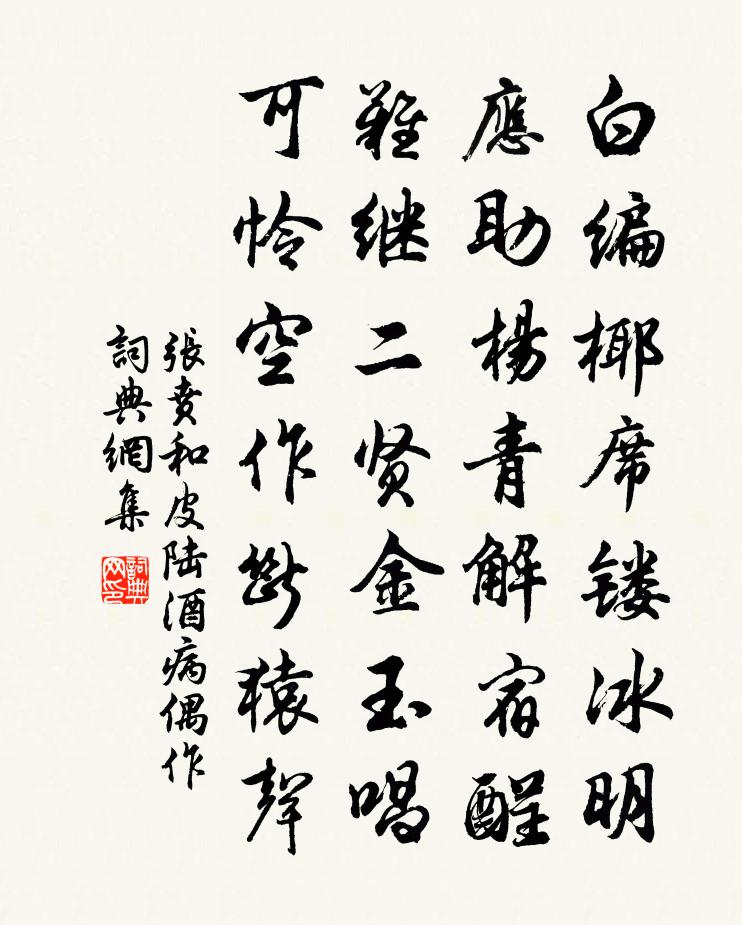 白编椰席镂冰明
應助楊青解宿酲
難继二贤金玉唱
可怜空作斷猿聲
張賁和皮陆酒病偶作
詞典網集
詞典网印